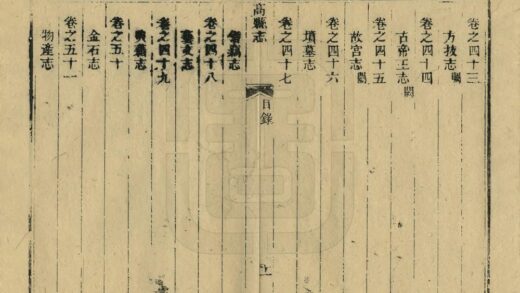 卷之四十三
方技志 闕
卷之四十四
古帝王志 闕
卷之四十五
故宮志 闕
卷之四十六
墳墓志
卷之四十七
高縣志 目錄
志
卷之四十八
藝文志
卷之四十九
志
卷之五十
金石志
卷之五十一
物產志